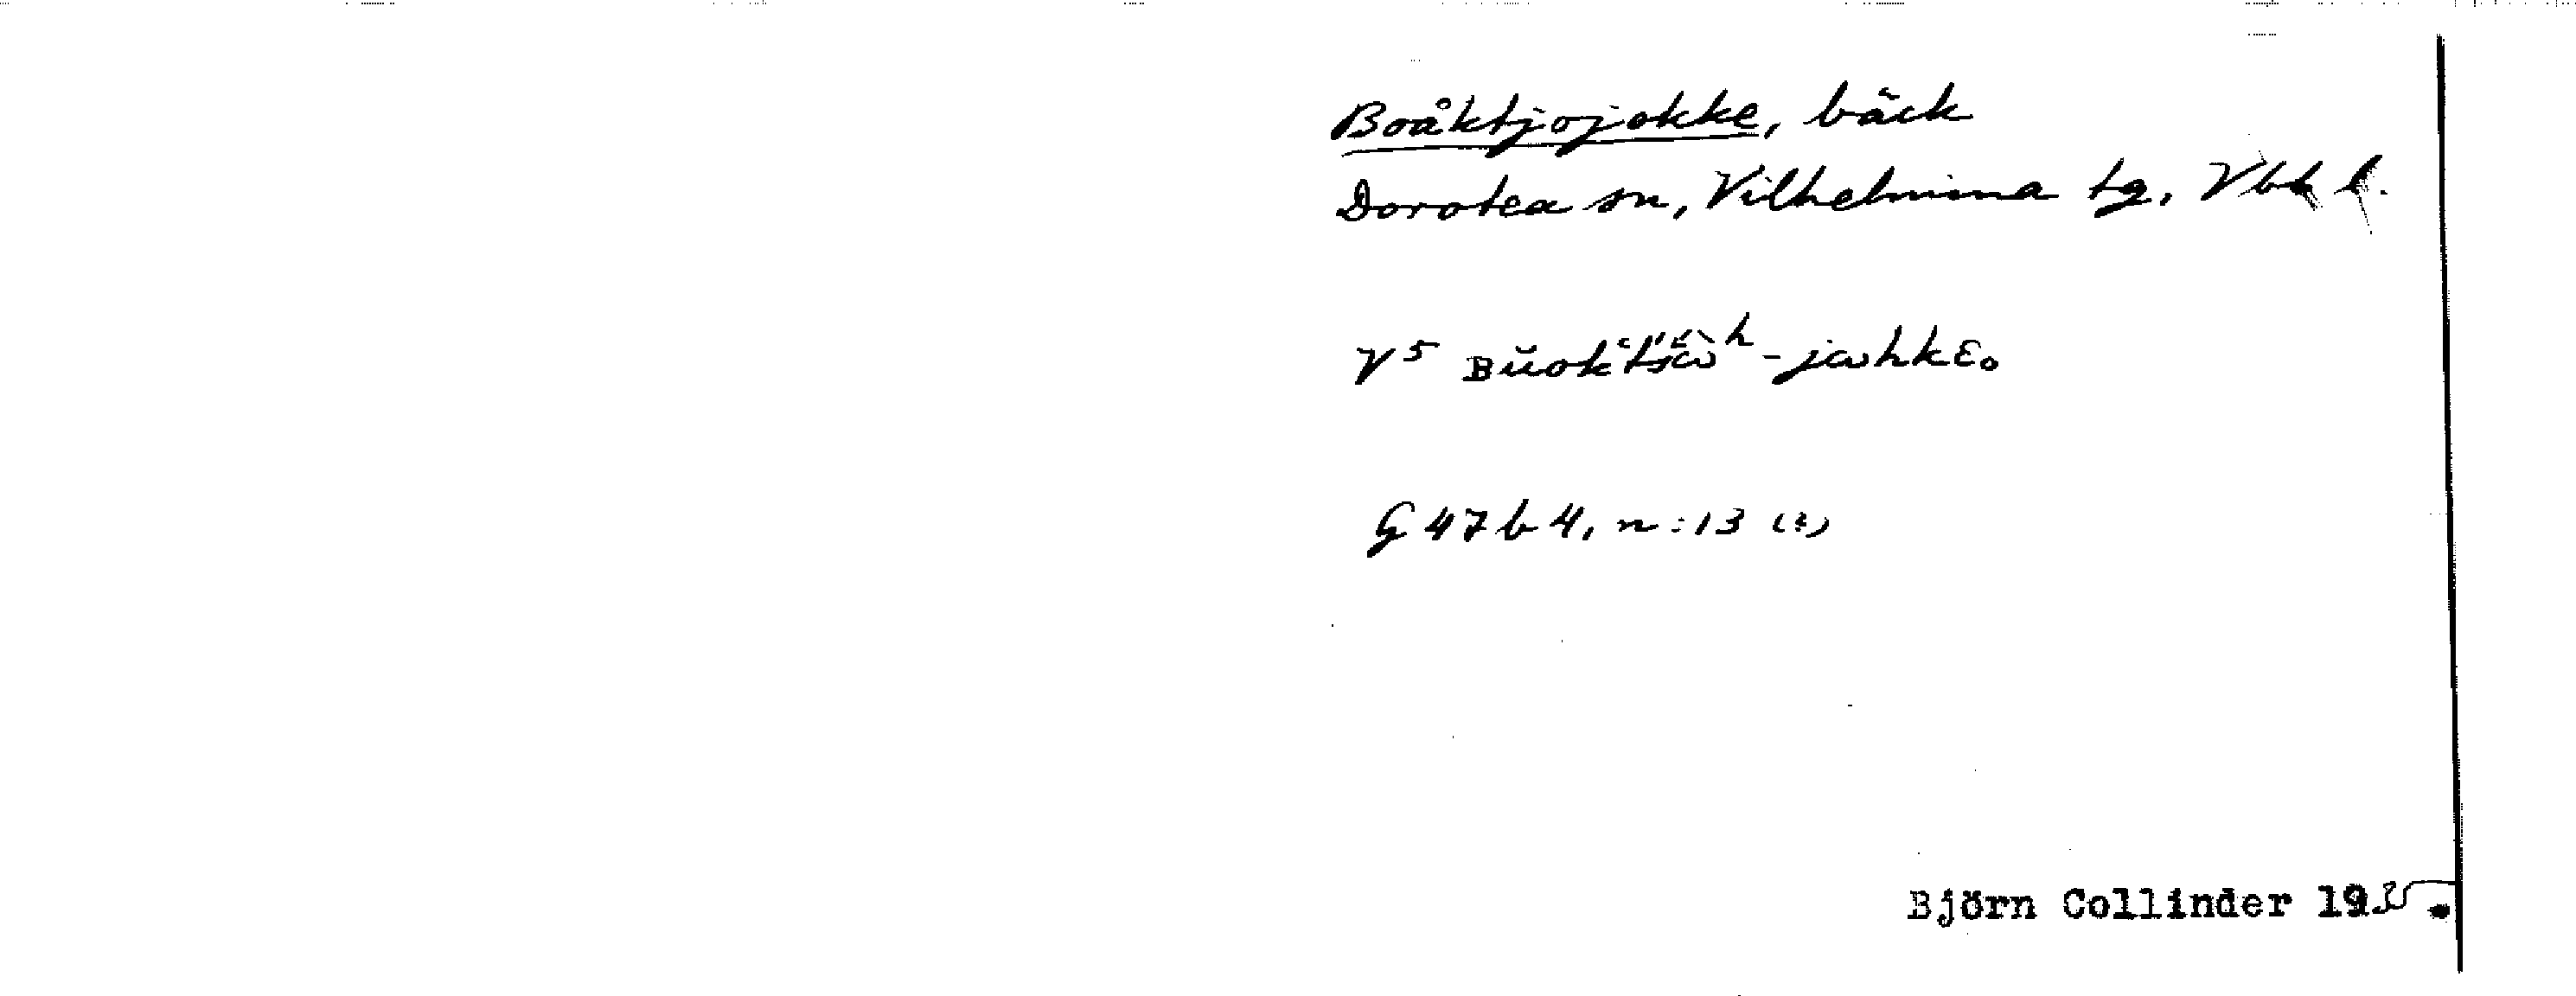 Boåktjojokke, bäck
Dorotea sn, Vilhelmina tg, Vbt l.
V⁵ ʙŭok‘tʹśὼʰ-jωhkε₀
G 47 b 4, n:13 (?)
Björn Collinder 19